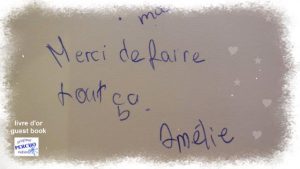 ma
Merci de faire
tout ça
b.
Amélie
livre d'or
guest book
PERCHO